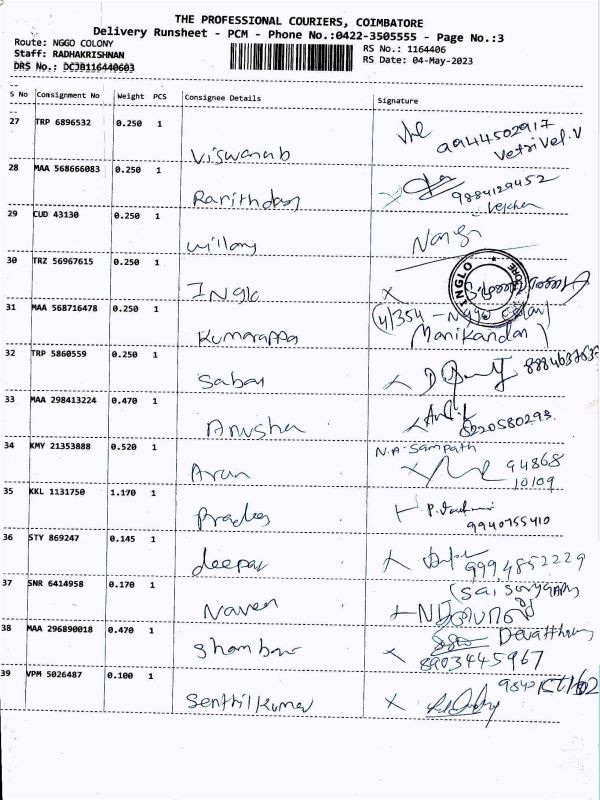 THE PROFESSIONAL COURIERS, COIMBATORE
Delivery Runsheet - PCM - Phone No.:0422-3505555 - Page No.:3
Route: NGGO COLONY
RS No.: 1164406
Staff: RADHAKRISHNAN
RS Date: 04-May-2023
DRS No.: DCJB116440603
S No Consignment No Weight PCS Consignee Details Signature
27 TRP 6896532 0.250 1
9944502917
Vetrivel.V
Viswanab
28 MAA 568666083 0.250 1
9884129452
Ranithdas
29 CUD 43130 0.250 1
Willams
30 TRZ 56967615 0.250 1
INGLO
Inglo
31 MAA 568716478 0.250 1
4/354 - NGGO Colony
Manikandan
Kumarappa
32 TRP 5860559 0.250 1
Sabari
33 MAA 298413224 0.470 1
Anusha
34 KMY 21353888 0.520 1
N.A. Sampath
94868
10109
Arun
35 KKL 1131750 1.170 1
9940755410
Pradeep
36 STY 869247 0.145 1
9994852229
deepak
37 SNR 6414958 0.170 1
Naveen
38 MAA 296890018 0.470 1
8903445967
Shambav
39 VPM 5026487 0.100 1
Senthilkumar